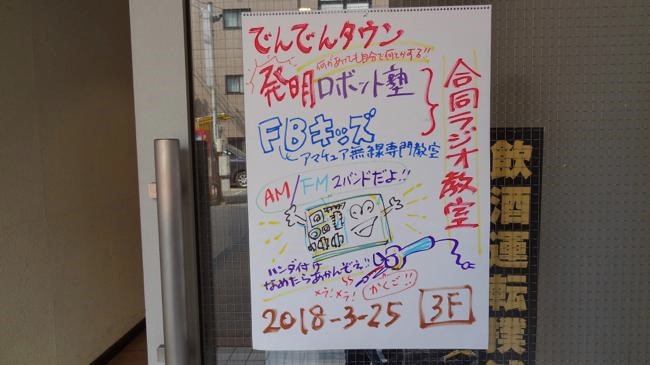 でんでんタウン
何があっても自分で何とかする!!
発明ロボット塾
FBキッズ
アマチュア無線専門教室
合同ラジオ教室
AM/FM 2バンドだよ!!
ハンダ付け
なめたらあかんぞぇ!!
メラ!メラ!
かくご!!
2018-3-25
3F
飲酒運転撲